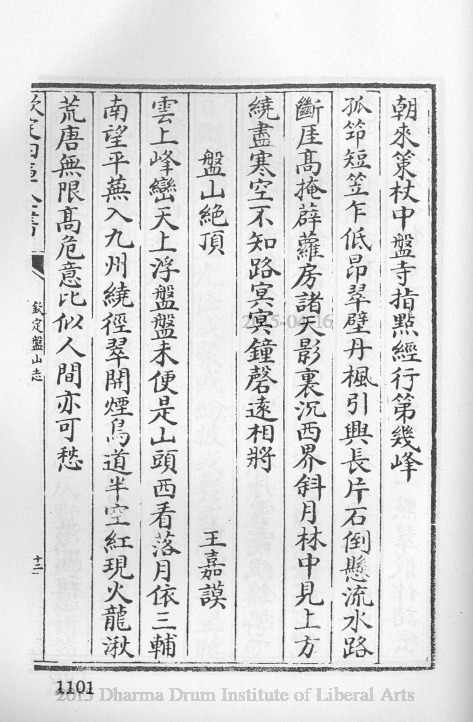 朝來策杖中盤寺指點經行第幾峰
孤筇短笠乍低昂翠壁丹楓引興長片石倒懸流水路
斷厓高掩薜蘿房諸天影裏沉西界斜月林中見上方
繞盡寒空不知路冥冥鐘磬遠相將
盤山絶頂 王嘉謨
雲上峰巒天上浮盤盤未便是山頭西看落月依三輔
南望平蕪入九州繞徑翠開煙鳥道半空紅現火龍湫
荒唐無限高危意比似人間亦可愁
欽定四庫全書
欽定盤山志
十二
2015-04-16
1101
2015 Dharma Drum Institute of Liberal Arts